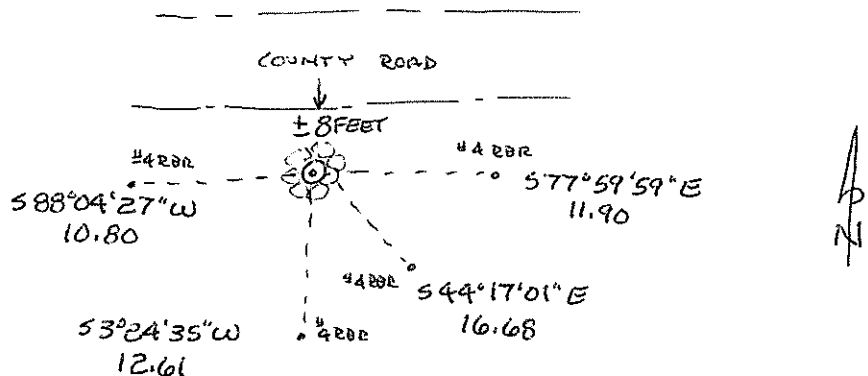 COUNTY ROAD
±8 FEET
#4 RBR
#4 RBR
S88°04'27"W
10.80
S77°59'59"E
11.90
N
#4 RBR
S44°17'01"E
16.68
S3°24'35"W
12.61
#4 RBR